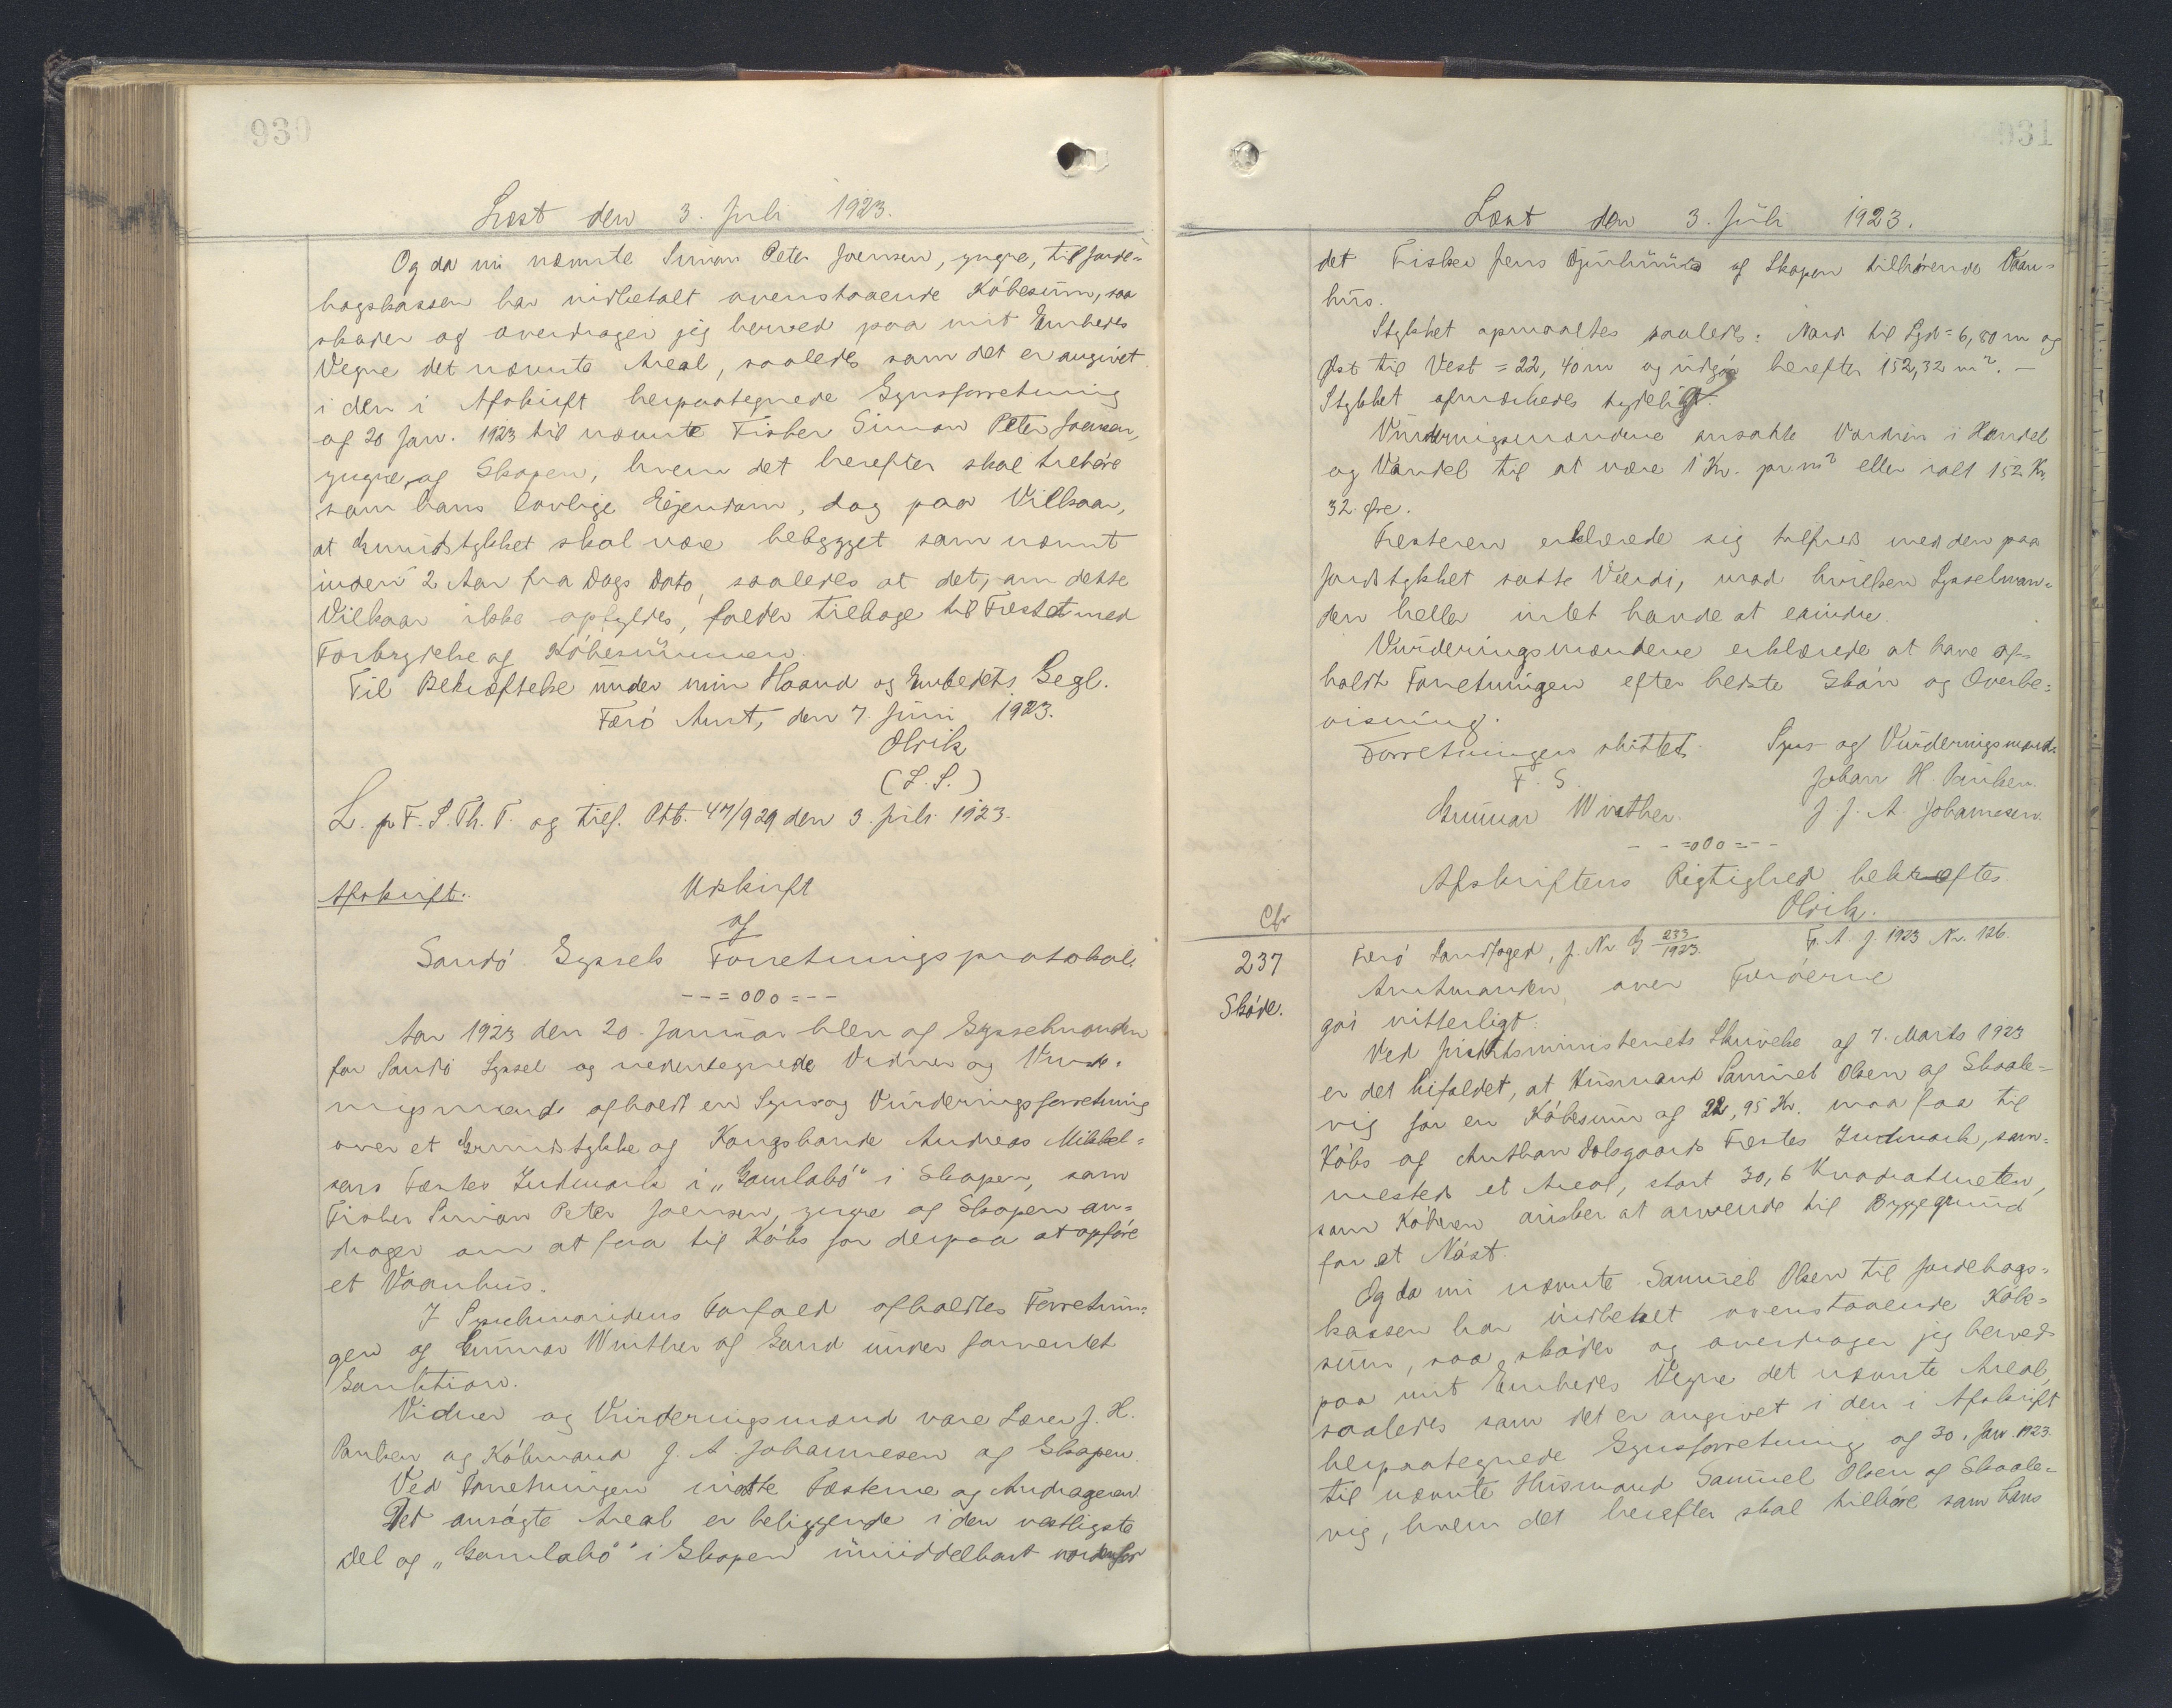 930
Læst den 3. Juli 1923.
Og da nu nævnte Simon Peter Joensen, yngre, til Jorde-
bogskassen har indbetalt ovenstaaende Købesum, saa
skøder og overdrager jeg herved paa mit Embedes
Vegne det nævnte Areal, saaledes som det er angivet
i den i Afskrift herpaategnede Synsforretning
af 20 Jan. 1923 til nævnte Fisker Simon Peter Joensen,
yngre, af Skopen, hvem det herefter skal tilhøre
som hans lovlige Ejendom, dog paa Vilkaar,
at Grundstykket skal være bebygget som nævnt
inden 2 Aar fra Dags Dato, saaledes at det, om dette
Vilkaar ikke opfyldes, falder tilbage til Fæstet med
Fortrydelse af Købesummen.
Til Bekræftelse under min Haand og Embedets Segl.
Færø Amt, den 7. Juni 1923.
Olrik
(L. S.)
L. p F. S. Th. T. og tilf. Ptb. 47/929 den 3. juli 1923.
Afskrift. Udskrift
af
Sandø Syssels Forretningsprotokol.
--=000=--
Aar 1923 den 20. Januar blev af Sysselmanden
for Sandø Syssel og nedentegnede Vidner og Vurde-
ringsmænd afholdt en Syns og Vurderingsforretning
over et Grundstykke af Kongsbonde Andreas Mikkel-
sens Fæstes Indmark i "Gamlabø" i Skopen, som
Fisker Simon Peter Joensen, yngre af Skopen an-
drager om at faa til Købs for derpaa at opføre
et Vaanhus.
I Sysselmandens Forfald afholdtes Forretnin-
gen af Gunnar Winther af Sand under forventet
Sanktion.
Vidner og Vurderingsmænd vare Lærer J. H.
Poulsen og Købmand J. A. Johannesen af Skopen.
Ved Forretningen mødte Fæsterne og Andrageren
Det ansøgte Areal er beliggende i den vestligste
Del af "Gamlabø" i Skopen umiddelbart nordenfor
931
Læst den 3. Juli 1923.
det Fisker Jens af Skopen tilhørende Vaan-
hus.
Stykket opmaaltes saaledes: Nord til Syd = 6,80 m og
Øst til Vest = 22,40 m og udgør herefter 152,32 m². —
Stykket afmærkedes tydeligt.
Vurderingsmændene ansatte Værdien i Handel
og Vandel til at være 1 Kr. pr m² eller ialt 152 Kr.
32 Øre.
Fæsteren erklærede sig tilfreds med den paa
Jordstykket satte Værdi, mod hvilken Sysselman-
den heller intet havde at erindre.
Vurderingsmændene erklærede at have af-
holdt Forretningen efter bedste Skøn og Overbe-
visning.
Forretningen sluttet. Syns og Vurderingsmænd.
F. S. Johan H. Poulsen.
Gunnar Winther. J. J. A. Johannesen.
--=000=--
Afskriftens Rigtighed bekræftes.
Olrik.
Cfr
237
Skøde.
Færø Landfoged, J. Nr G 233/1923. F. A. J. 1923 Nr. 126.
Amtmanden over Færøerne
gør vitterligt:
Ved Justitsministeriets Skrivelse af 7. Marts 1923
er det bifaldet, at Husmand Samuel Olsen af Skaale-
vig for en Købesum af 22,95 Kr. maa faa til
Købs af Anthon Dalsgaards Fæstes Indmark, sam-
mesteds et Areal, stort 30,6 Kvadratmeter,
som Køberen ønsker at anvende til Byggegrund
for et Nøst.
Og da nu nævnte Samuel Olsen til Jordebogs-
kassen har indbetalt ovenstaaende Købe-
sum, saa skøder og overdrager jeg herved
paa mit Embedes Vegne det nævnte Areal,
saaledes som det er angivet i den i Afskrift
herpaategnede Synsforretning af 30. Jan. 1923
til nævnte Husmand Samuel Olsen af Skaale-
vig, hvem det herefter skal tilhøre som hans